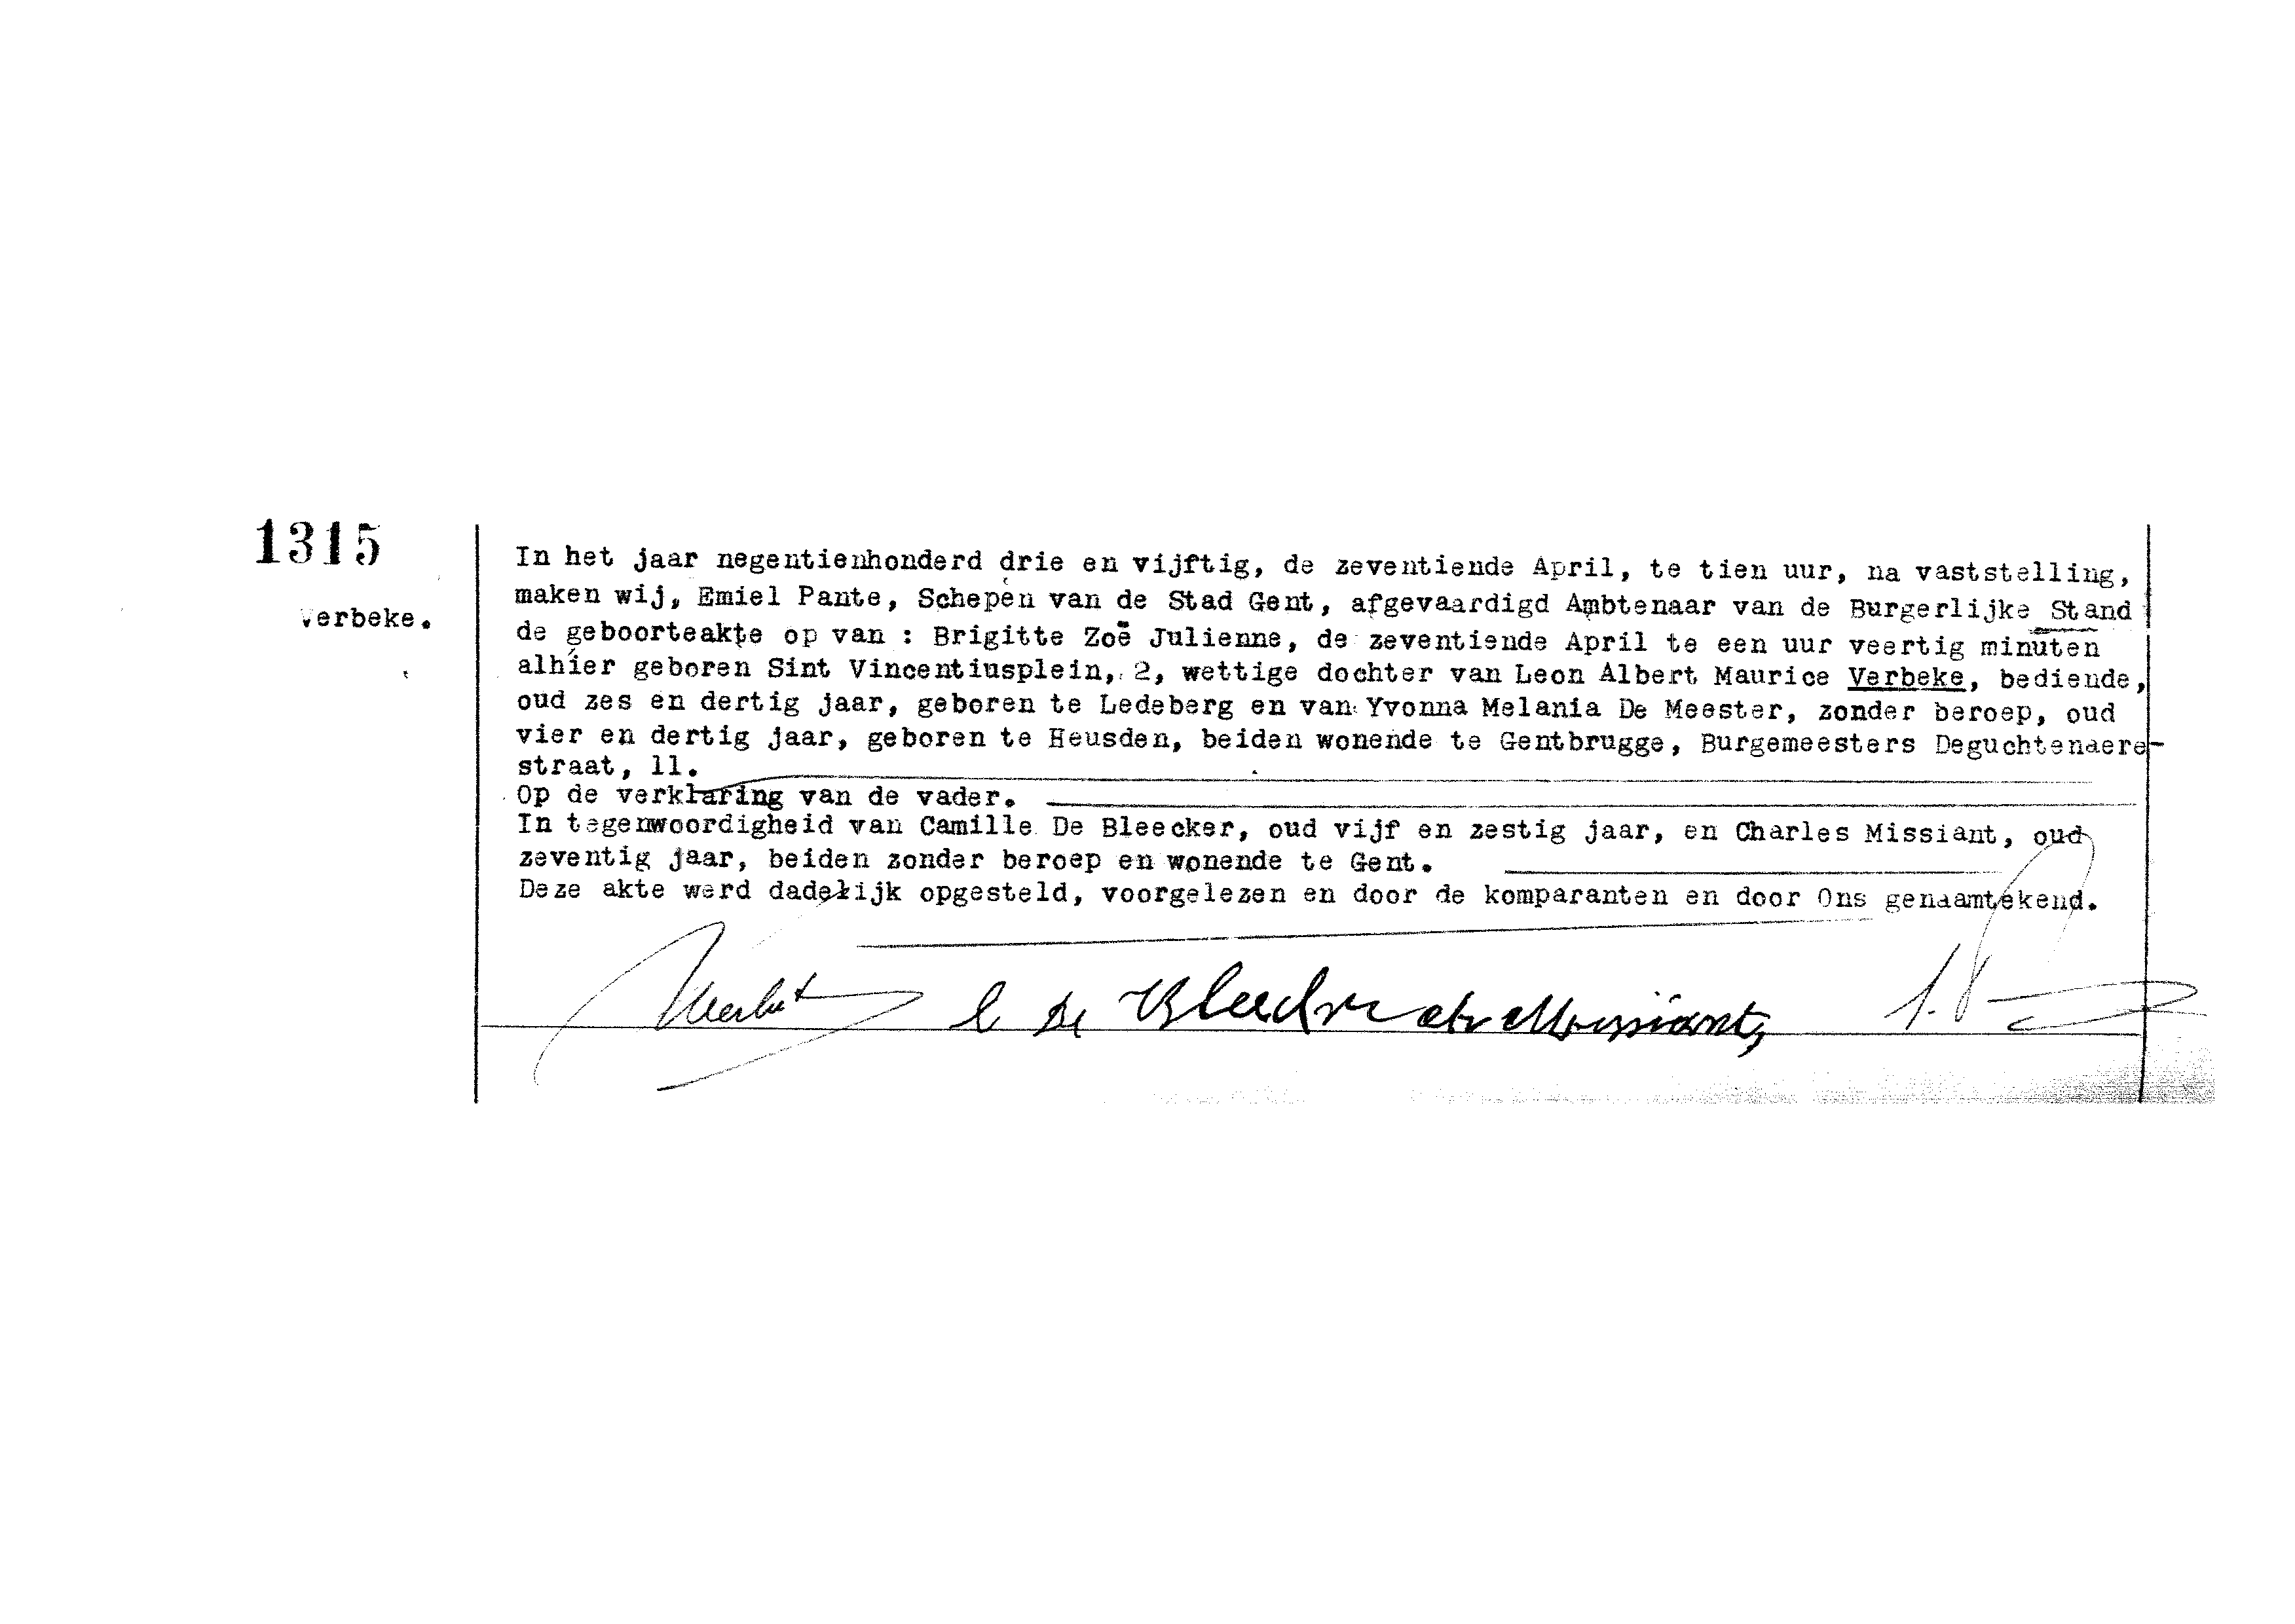 1315
Verbeke.
In het jaar negentienhonderd drie en vijftig, de zeventiende April, te tien uur, na vaststelling,
maken wij, Emiel Pante, Schepen van de Stad Gent, afgevaardigd Ambtenaar van de Burgerlijke Stand
de geboorteakte op van : Brigitte Zoë Julienne, de zeventiende April te een uur veertig minuten
alhier geboren Sint Vincentiusplein, 2, wettige dochter van Leon Albert Maurice Verbeke, bediende,
oud zes en dertig jaar, geboren te Ledeberg en van Yvonna Melania De Meester, zonder beroep, oud
vier en dertig jaar, geboren te Heusden, beiden wonende te Gentbrugge, Burgemeesters Deguchtenaere-
straat, 11.
Op de verklaring van de vader.
In tegenwoordigheid van Camille De Bleecker, oud vijf en zestig jaar, en Charles Missiant, oud
zeventig jaar, beiden zonder beroep en wonende te Gent.
Deze akte werd dadelijk opgesteld, voorgelezen en door de komparanten en door Ons genaamtekend.
C De Bleecker Ch Missiant